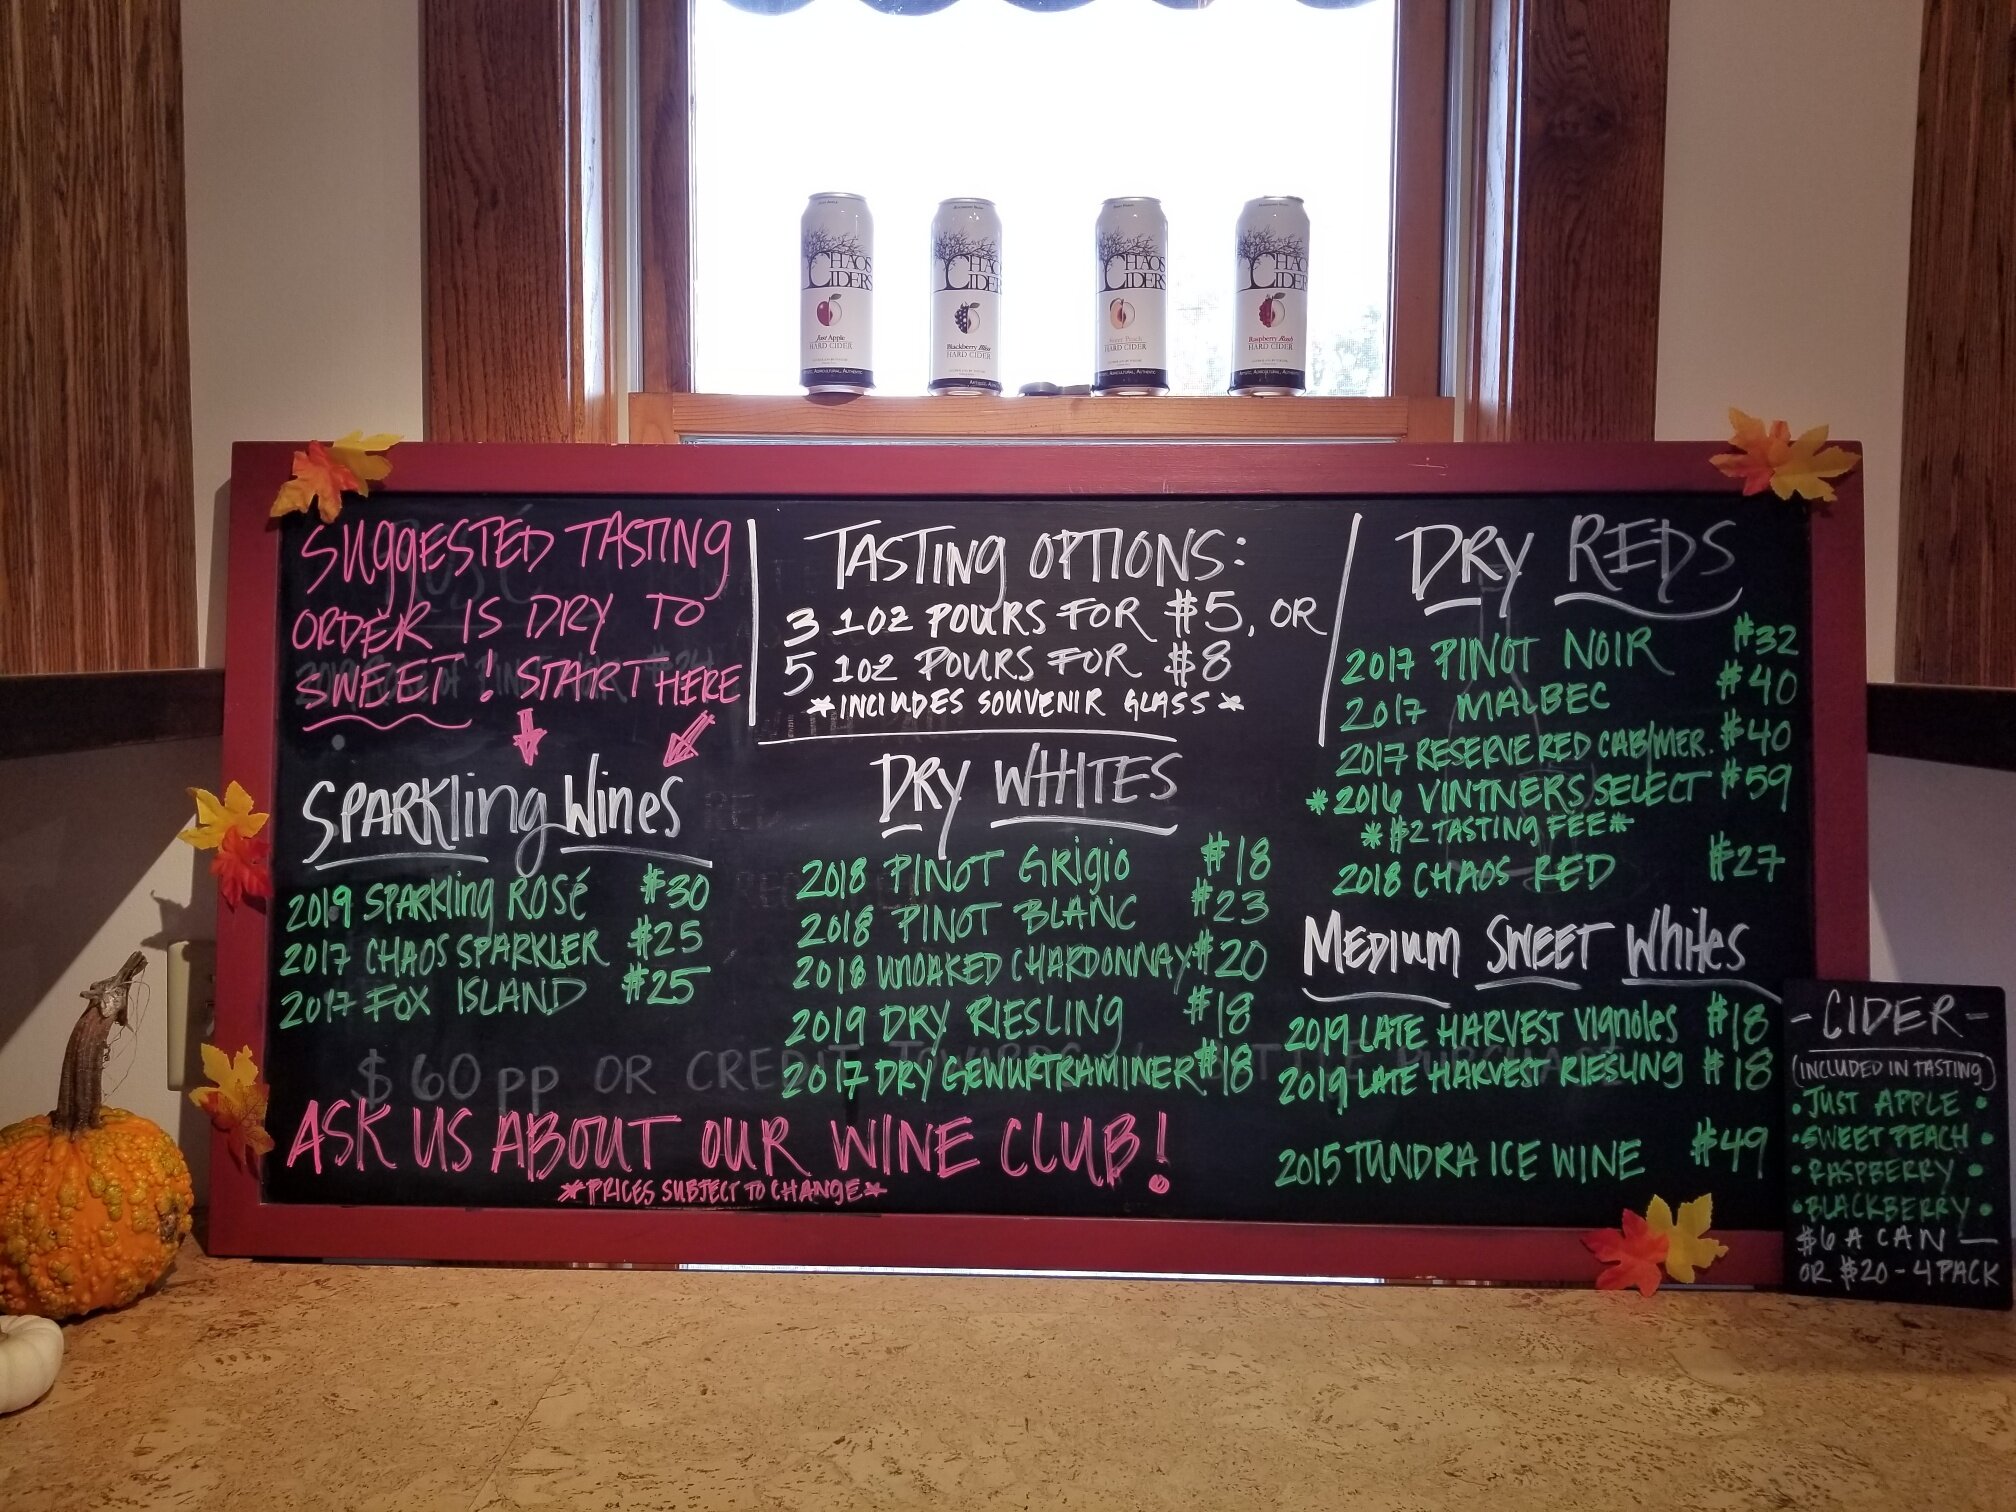 CHAOS CIDERS
Just Apple
HARD CIDER
CHAOS CIDERS
Blackberry Bliss
HARD CIDER
CHAOS CIDERS
Sweet Peach
HARD CIDER
CHAOS CIDERS
Raspberry Rush
HARD CIDER
SUGGESTED TASTING
ORDER IS DRY TO
SWEET! START HERE
SPARKling Wines
2019 SPARKling ROSé #30
2017 CHAOS SPARKLER #25
2017 FOX ISLAND #25
TASTING OPTIONS:
3 1OZ POURS FOR $5, OR
5 1OZ POURS FOR $8
*INCLUDES SOUVENIR GLASS*
DRY WHITES
2018 PINOT GRIGIO #18
2018 PINOT BLANC #23
2018 UNOAKED CHARDONNAY #20
2019 DRY RIESLING #18
2017 DRY GEWURTRAMINER #18
DRY REDS
2017 PINOT NOIR #32
2017 MALBEC #40
2017 RESERVE RED CAB/MER. #40
*2016 VINTNERS SELECT #59
*$2 TASTING FEE*
2018 CHAOS RED #27
MEDIUM SWEET WHITES
2019 LATE HARVEST VIGNOLES #18
2019 LATE HARVEST RIESLING #18
2015 TUNDRA ICE WINE #49
$60 pp OR CREDIT
ASK US ABOUT OUR WINE CLUB!
*PRICES SUBJECT TO CHANGE*
-CIDER-
(INCLUDED IN TASTING)
•JUST APPLE•
•SWEET PEACH•
•RASPBERRY•
•BLACKBERRY•
$6 A CAN—
OR $20-4PACK